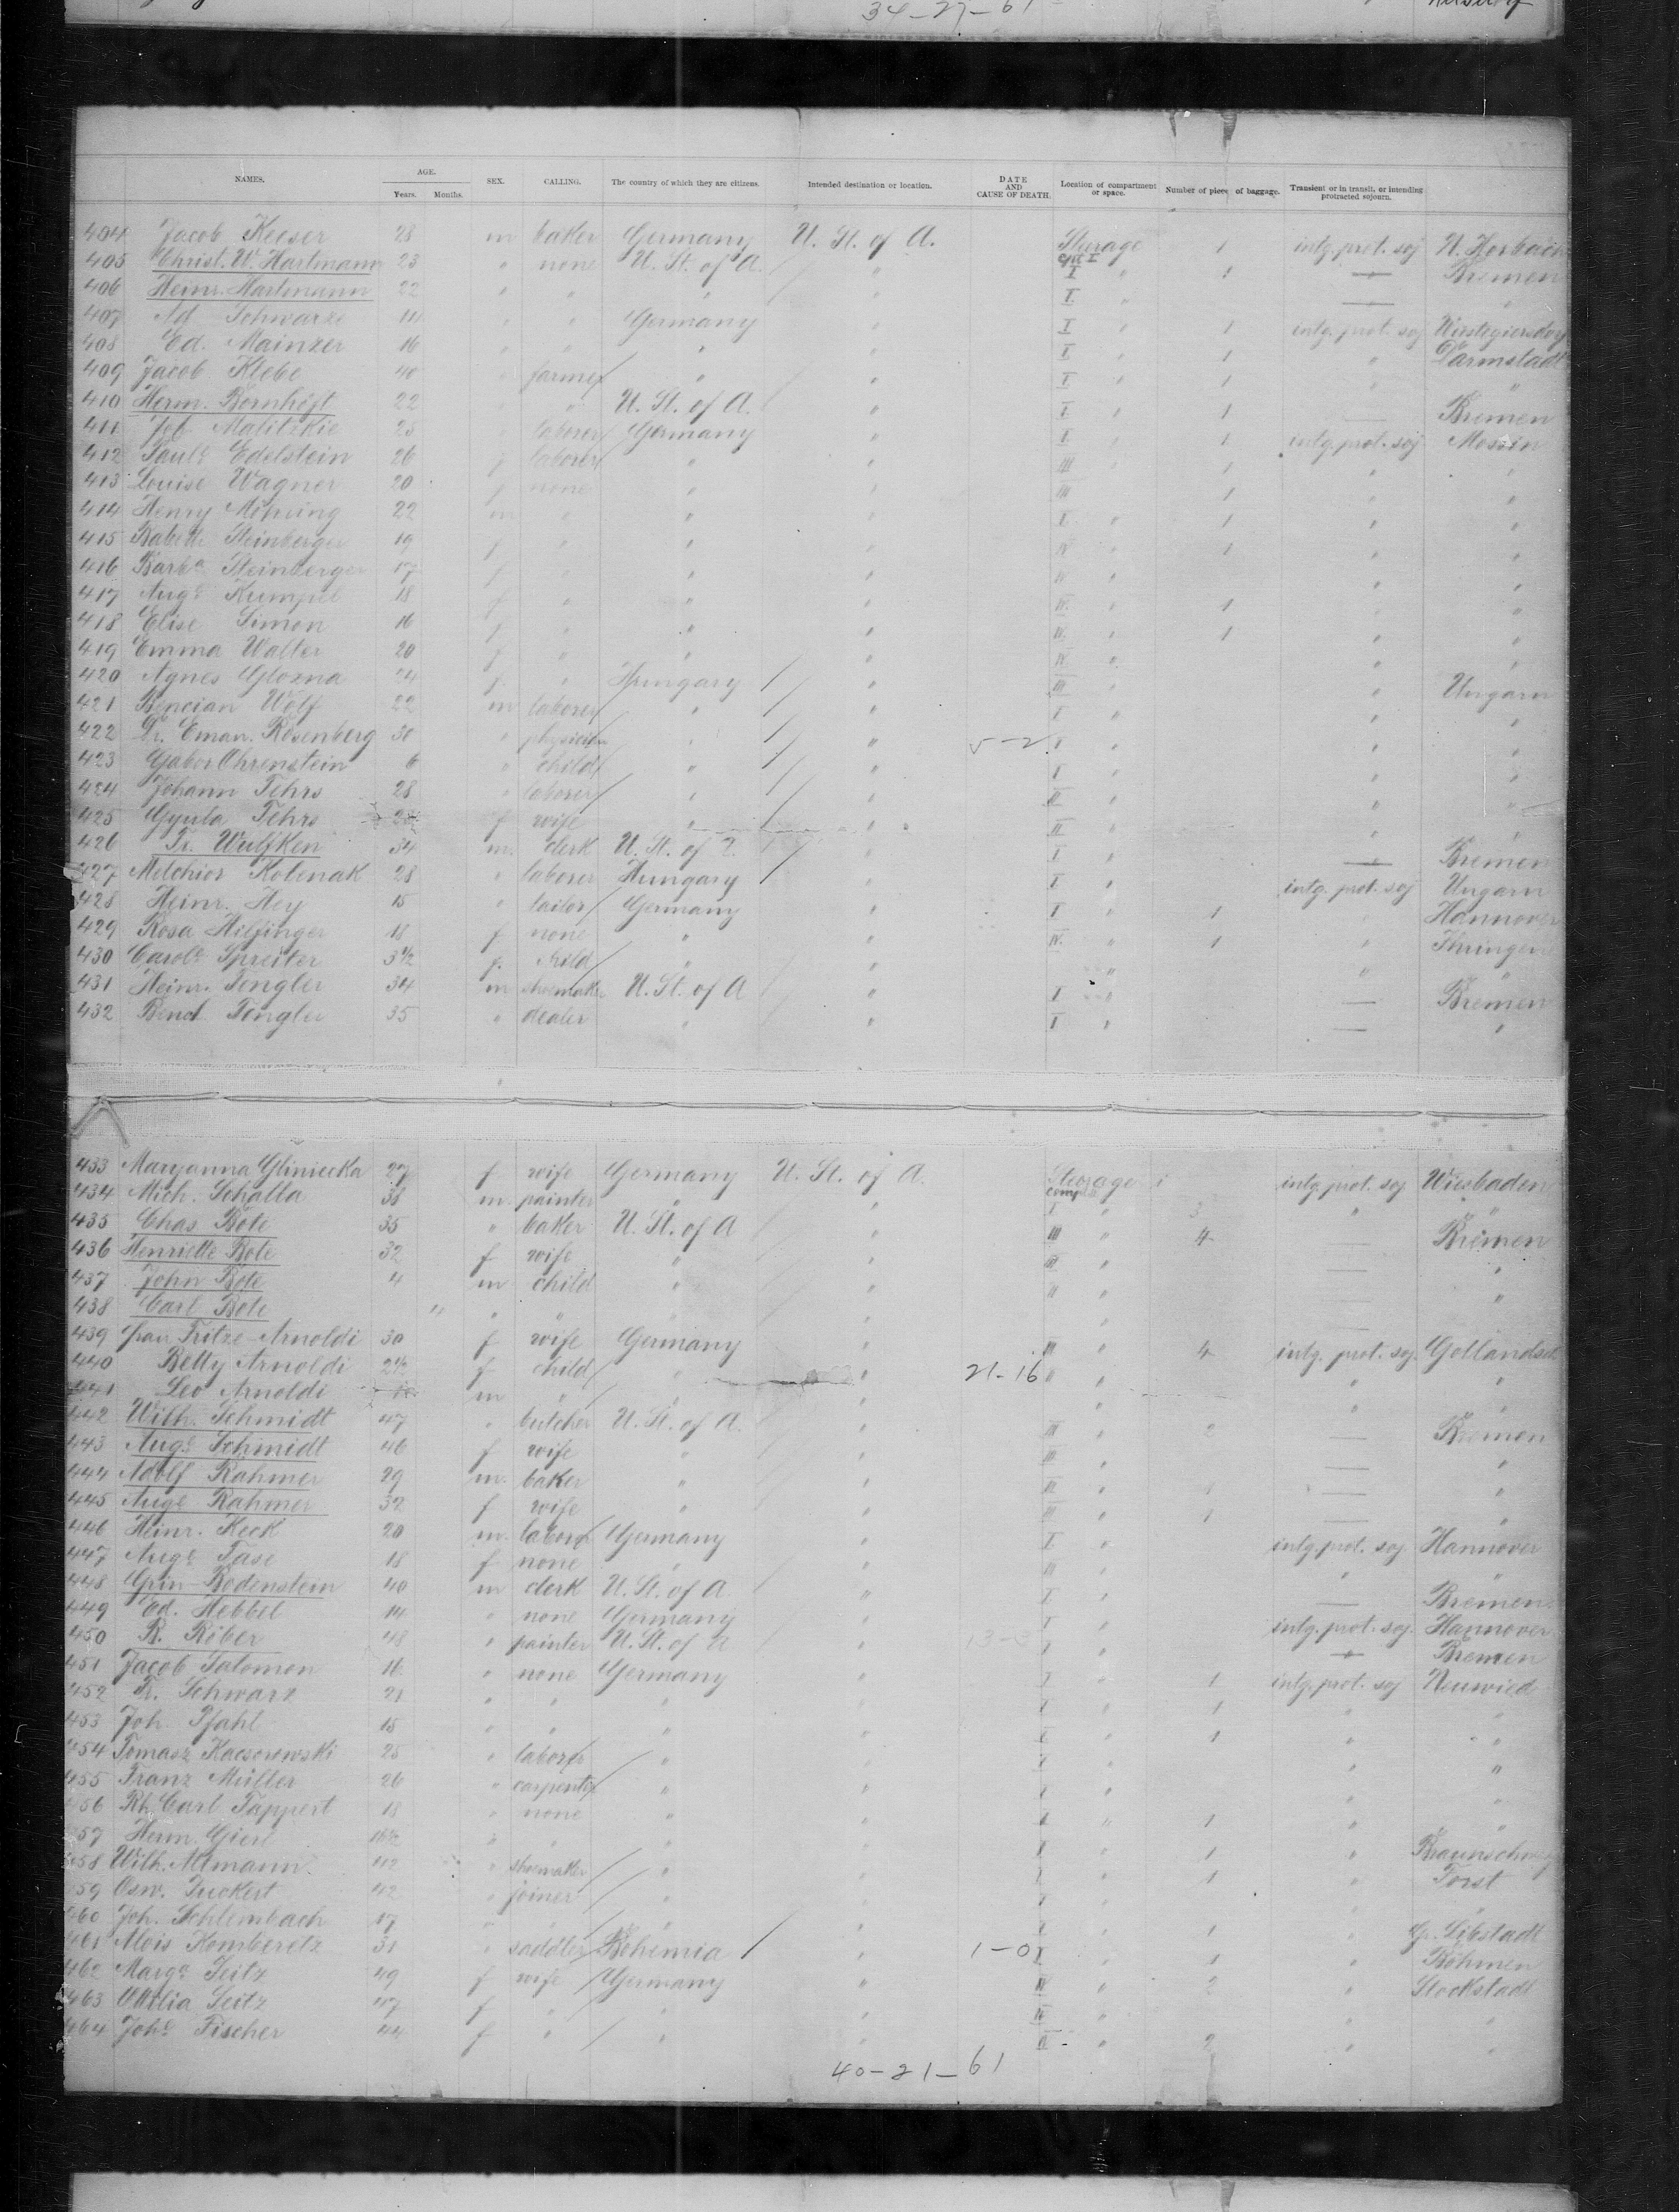 34-27-61
NAMES. AGE. Years. Months. SEX. CALLING. The country of which they are citizens. Intended destination or location. DATE AND CAUSE OF DEATH. Location of compartment or space. Number of pieces of baggage. Transient or in transit, or intending protracted sojourn.
404 Jacob Keeser 28 m baker Germany U. St. of A. Steerage 1 intg. prot. soj N. Horbach
405 Christ. W. Hartmann 23 " none U. St. of A. " I " 1 — Bremen
406 Heinr. Hartmann 22 " " " " I " — "
407 Ad Schwarze " " Germany " I " 1 intg. prot. soj
408 Ed. Mainzer 16 " " " " I " 1 " Darmstadt
409 Jacob Klebe 40 " farmer " " I " 1 " "
410 Herm. Bornhöft 22 " " U. St. of A. " I " 1 — Bremen
411 Job Malitzkie 25 " laborer Germany " I " 1 intg. prot. soj Mossin
412 Paule Edelstein 26 f laborer " " III " 1 " "
413 Louise Wagner 20 f none " " III 1 " "
414 Henry Mihring 22 m " " " I " 1 " "
415 Babeth Steinberger 19 f " " " IV " 1 " "
416 Barba Steinberger 17 f " " " IV " " "
417 Auge Kumpel 18 f " " " IV " 1 "
418 Elise Simon 16 f " " " IV " 1 " "
419 Emma Walter 20 f " " " IV " " "
420 Agnes Glozna 24 f " Hungary " III " " Ungarn
421 Wolf 22 m laborer " " I " " "
422 Dr. Eman. Rosenberg 30 " physician " " 5-2 I " " "
423 Gabor Ohrenstein 6 " child " " I " " "
424 Johann Fehrs 28 " laborer " " II " " "
425 Gyula Fehrs f wife " " II " " "
426 Fr. Wulfken 34 m. clerk U. St. of " I " — Bremen
427 Melchior Kolenak 28 " laborer Hungary " I " intg. prot. soj Ungarn
428 Heinr. Hey 15 " tailor Germany " I " 1 " Hannover
429 Rosa Hilfinger 18 f none " " IV. " 1 "
430 Carole Spreiter 3½ f. child " " " " "
431 Heinr. Tengler 34 m shoemaker U. St. of A " I " — Bremen
432 Bend Tengler 35 " dealer " " I " — "
433 Maryanna Gliniecka 27 f wife Germany U. St. of A. Steerage 1 intg. prot. soj Wiesbaden
434 Mich. Schalla 38 m. painter " " I " 3 " "
435 Chas Bote 35 " baker U. St. of A " III " 4 — Bremen
436 Henriette Bote 32 f wife " " III " — "
437 John Bote 4 m child " " " " "
438 Carl Bote " " " " " —
439 Frau Fritze Arnoldi 30 f wife Germany " III " 4 intg. prot. soj.
440 Betty Arnoldi 2½ f child " " 21-16 " " " "
441 Leo Arnoldi m " " " " "
442 Wilh. Schmidt 47 " butcher U. St. of A. " III " 2 — Bremen
443 Auge Schmidt 46 f wife " " III " — "
444 Adolf Rahmer 29 m. baker " " III " 1 — "
445 Auge Rahmer 32 f wife " " III " 1 — "
446 Heinr. Keck 20 m. laborer Germany " I " intg. prot. soj. Hannover
447 Auge Fase 18 f none " " III " " "
448 Bodenstein 40 m clerk U. St. of A " I " — Bremen
449 Ed. Hebbel 14 " none Germany " I " intg. prot. soj. Hannover
450 R. Röber 48 " painter U. St. of A " 13-3 I " — Bremen
451 Jacob Salomon 16 " none Germany " I " 1 intg. prot. soj Neuwied
452 Fr. Schwarz 21 " " " " I " 1 " "
453 Joh. Pfahl 15 " " " " I " 1 " "
454 Tomasz Kacsorowski 25 " laborer " " I " " "
455 Franz Müller 26 " carpenter " " I " " "
456 Rh. Carl Tappert 18 " none " " I " 1 " "
457 Herm. Gierl 16½ " " " " I " 1 " Braunschweig
458 Wilh. Altmann 42 " shoemaker " " I " 1 " Forst
459 Osw. Tuckert 42 " joiner " " I " " "
460 Joh. Schlembach 17 " " " " I " 1 " Gr. Eibstadt
461 Alois Homberetz 31 " saddler Bohemia " 1-0 I " 1 " Böhmen
462 Marga Seitz 49 f wife Germany " IV " 2 " Stockstadt
463 Ottilia Seitz 47 f " " " IV " " "
464 Johe Fischer 44 f " " " II " 2 " "
40-21-61